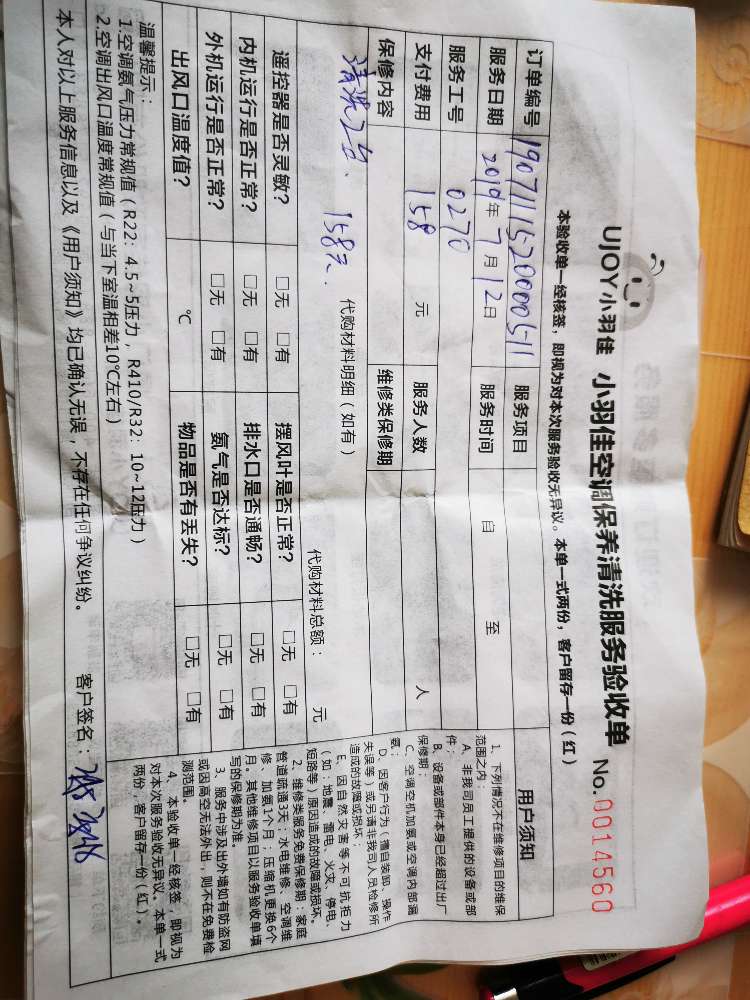 UJOY小羽佳 小羽佳空调保养清洗服务验收单 No.0014560
本验收单一经核签，即视为对本次服务验收无异议。本单一式两份，客户留存一份（红）
订单编号 服务项目
服务日期 2019年7月12日 服务时间 自 至
服务工号 0270
支付费用 158 元 服务人数 人
保修内容 维修类保修期
清洗2台、158元． 代购材料明细（如有） 代购材料总额： 元
遥控器是否灵敏？ □无 □有 摆风叶是否正常？ □无 □有
内机运行是否正常？ □无 □有 排水口是否通畅？ □无 □有
外机运行是否正常？ □无 □有 氨气是否达标？ □无 □有
出风口温度值？ ℃ 物品是否有丢失？ □无 □有
温馨提示：
1.空调氨气压力常规值（R22：4.5~5压力，R410/R32：10~12压力）
2.空调出风口温度常规值（与当下室温相差10℃左右）
本人对以上服务信息以及《用户须知》均已确认无误，不存在任何争议纠纷。 客户签名：
用户须知
1、下列情况不在维修项目的维保
范围之内：
A、非我司员工提供的设备或部
件；
B、设备或部件本身已经超过出厂
保修期；
C、空调空机加氨或空调内部漏
氨；
D、因客户行为（擅自装卸、操作
失误等）或另请非我司人员检修所
造成的故障或损坏；
E、因自然灾害等不可抗拒力
（如：地震、雷电、火灾、停电、
短路等）原因造成的故障或损坏。
2、维修类服务免费保修期：家庭
管道疏通3天；水电维修、空调维
修、加氨1个月；压缩机更换6个
月。其他维修项目以服务验收单填
写的保修期为准。
3、服务中涉及出外墙如有防盗网
或因高空无法外出，则不在免费检
测范围。
4、本验收单一经核签，即视为
对本次服务验收无异议。本单一式
两份，客户留存一份（红）。